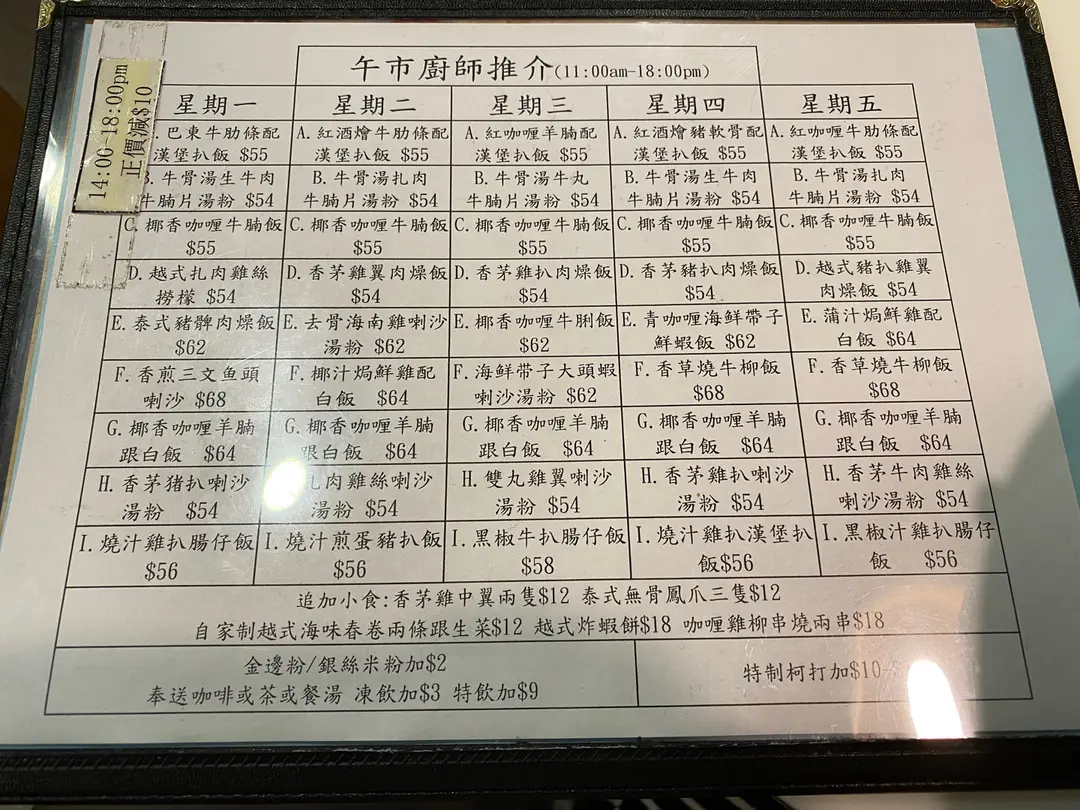 午市廚師推介(11:00am-18:00pm)
14:00-18:00pm
正價減$10
星期一 星期二 星期三 星期四 星期五
.巴東牛肋條配 A.紅酒燴牛肋條配 A.紅咖喱羊腩配 A.紅酒燴豬軟骨配 A.紅咖喱牛肋條配
漢堡扒飯 $55 漢堡扒飯 $55 漢堡扒飯 $55 漢堡扒飯 $55 漢堡扒飯 $55
B.牛骨湯生牛肉 B.牛骨湯扎肉 B.牛骨湯牛丸 B.牛骨湯生牛肉 B.牛骨湯扎肉
牛腩片湯粉 $54 牛腩片湯粉 $54 牛腩片湯粉 $54 牛腩片湯粉 $54 牛腩片湯粉 $54
C.椰香咖喱牛腩飯 C.椰香咖喱牛腩飯 C.椰香咖喱牛腩飯 C.椰香咖喱牛腩飯 C.椰香咖喱牛腩飯
$55 $55 $55 $55 $55
D.越式扎肉雞絲 D.香茅雞翼肉燥飯 D.香茅雞扒肉燥飯 D.香茅豬扒肉燥飯 D.越式豬扒雞翼
撈檬 $54 $54 $54 $54 肉燥飯 $54
E.泰式豬髀肉燥飯 E.去骨海南雞喇沙 E.椰香咖喱牛脷飯 E.青咖喱海鮮帶子 E.蒲汁焗鮮雞配
$62 湯粉 $62 $62 鮮蝦飯 $62 白飯 $64
F.香煎三文鱼頭 F.椰汁焗鮮雞配 F.海鮮带子大頭蝦 F.香草燒牛柳飯 F.香草燒牛柳飯
喇沙 $68 白飯 $64 喇沙湯粉 $62 $68 $68
G.椰香咖喱羊腩 G.椰香咖喱羊腩 G.椰香咖喱羊腩 G.椰香咖喱羊腩 G.椰香咖喱羊腩
跟白飯 $64 跟白飯 $64 跟白飯 $64 跟白飯 $64 跟白飯 $64
H.香茅猪扒喇沙 肉雞絲喇沙 H.雙丸雞翼喇沙 H.香茅雞扒喇沙 H.香茅牛肉雞絲
湯粉 $54 湯粉 $54 湯粉 $54 湯粉 $54 喇沙湯粉 $54
I.燒汁雞扒腸仔飯 I.燒汁煎蛋豬扒飯 I.黑椒牛扒腸仔飯 I.燒汁雞扒漢堡扒 I.黑椒汁雞扒腸仔
$56 $56 $58 飯$56 飯 $56
追加小食:香茅雞中翼兩隻$12 泰式無骨鳳爪三隻$12
自家制越式海味春卷兩條跟生菜$12 越式炸蝦餅$18 咖喱雞柳串燒兩串$18
金邊粉/銀絲米粉加$2
奉送咖啡或茶或餐湯 凍飲加$3 特飲加$9
特制柯打加$10